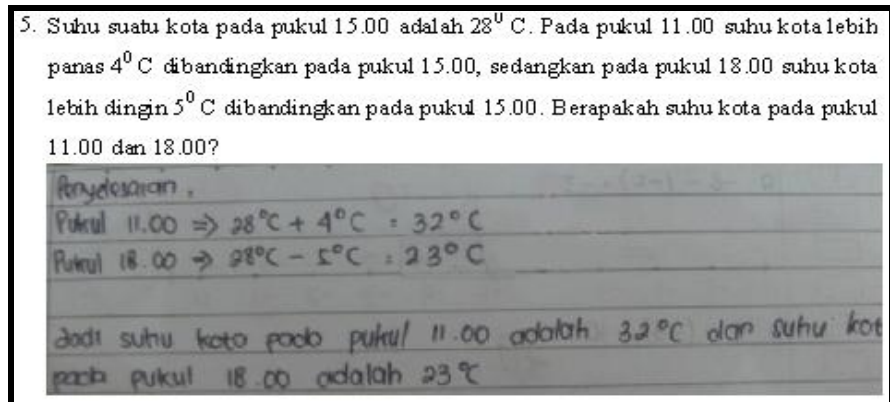 5. Suhu suatu kota pada pukul 15.00 adalah 28⁰ C. Pada pukul 11.00 suhu kota lebih
panas 4⁰ C dibandingkan pada pukul 15.00, sedangkan pada pukul 18.00 suhu kota
lebih dingin 5⁰ C dibandingkan pada pukul 15.00. Berapakah suhu kota pada pukul
11.00 dan 18.00?
Penyelesaian,
Pukul 11.00 ⇒ 28°C + 4°C = 32°C
Pukul 18.00 ⇒ 28°C - 5°C = 23°C
Jadi suhu kota pada pukul 11.00 adalah 32°C dan suhu kot
pada pukul 18.00 adalah 23°C